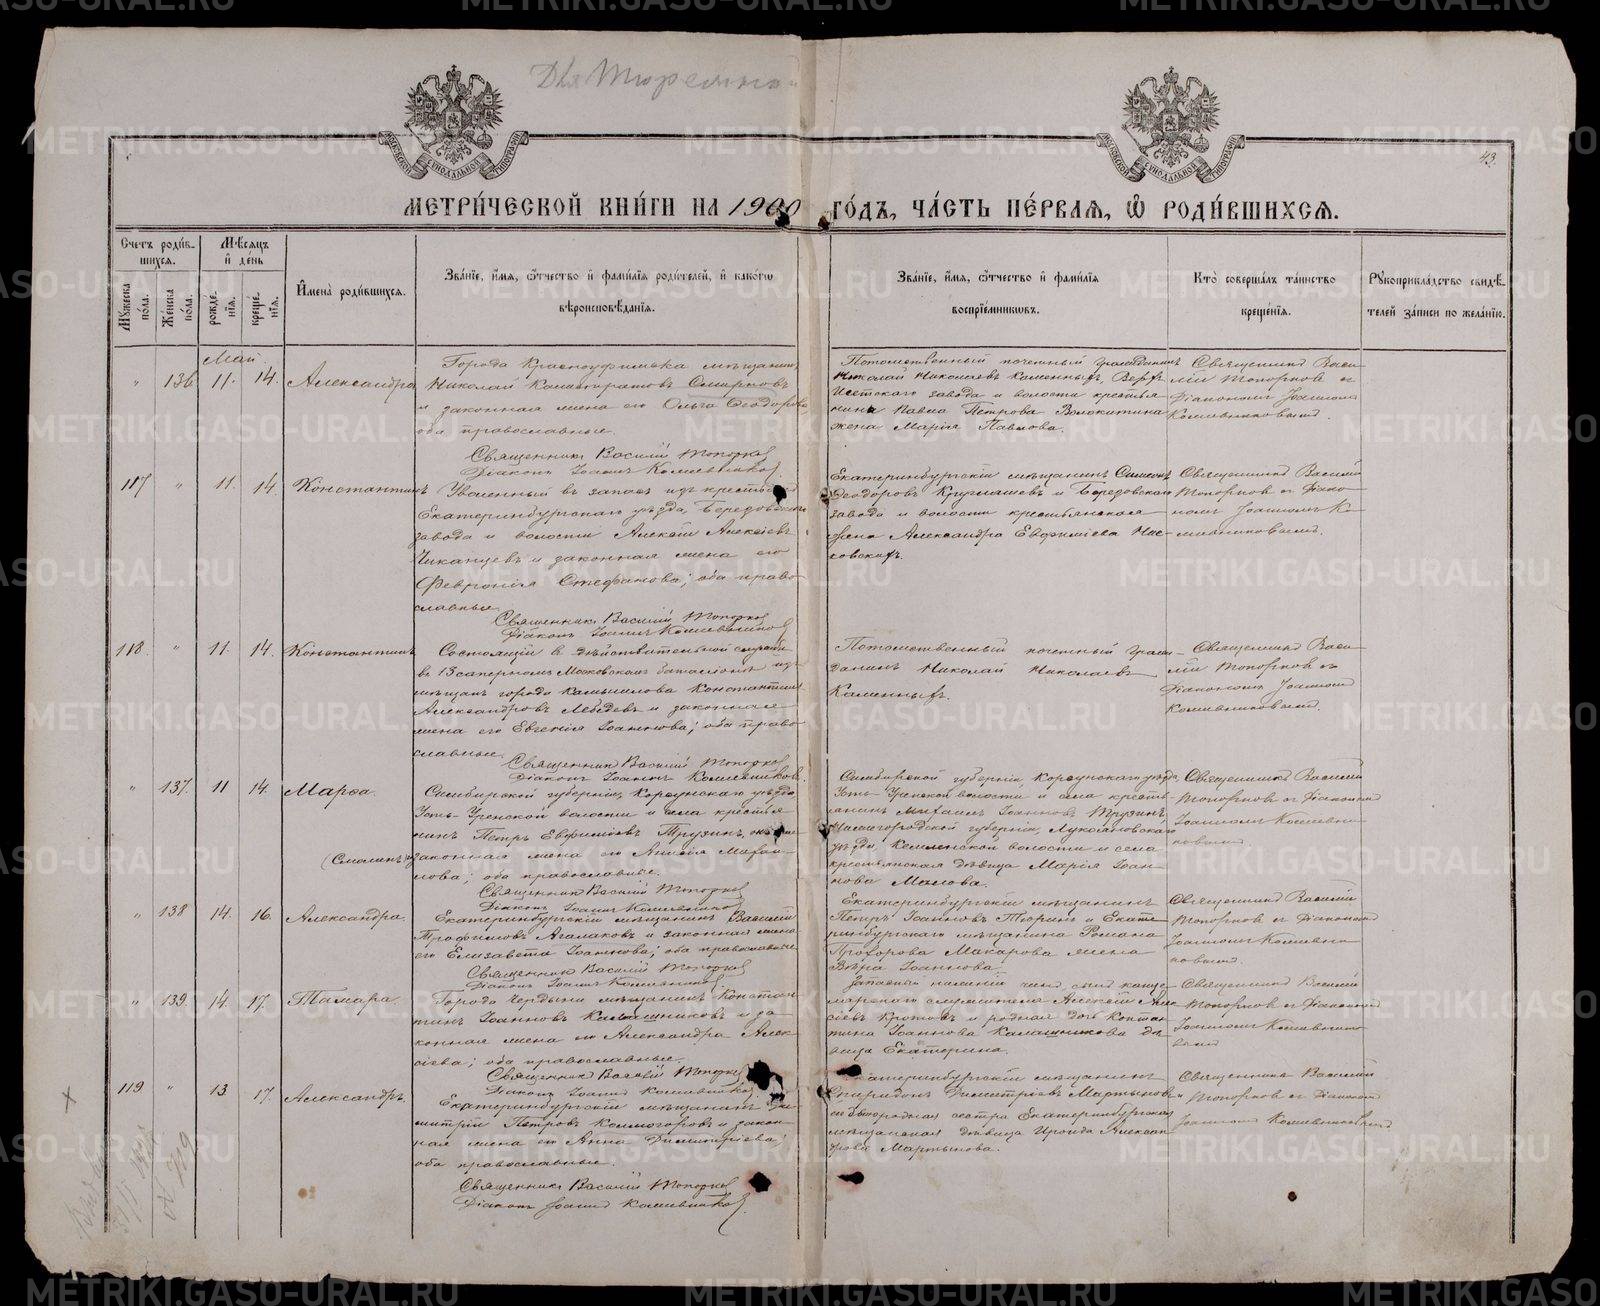 Для Тюремна
43.
МЕТРИ́ЧЕСКОЙ КНИ́ГИ НА 1900 ГО́ДЪ, ЧА́СТЬ ПЕ́РВАЯ, Ѽ РОДИ́ВШИХСЯ.
Счетъ роди́в-
шихся.
Му́жеска по́ла.
Же́нска по́ла.
Мѣ́сяцъ и де́нь
рожде́нїя.
креще́нїя.
И҆мена̀ роди́вшихся.
Зва́нїе, и҆́мя, ѻ҆́тчество и҆ фами́лїя роди́телей, и҆ како́гѡ
вѣроисповѣ́данїя.
Зва́нїе, и҆́мя, ѻ҆́тчество и҆ фами́лїя
воспрїе́мниковъ.
Кто̀ соверша́лъ та́инство
креще́нїя.
Рꙋкоприкла́дство свидѣ́-
телей за́писи по жела́нїю.
Май.
" 136 11. 14. Александра
Города Красноуфимска мѣщанинъ
Николай Смирновъ
и законная жена его Ольга Ѳеодорова
оба православные.
Священникъ Василій Топорков
Діаконъ Іоаннъ Кожевников
Потомственный почетный гражданинъ
Николай Николаевъ Каменныхъ, Верхъ
Исетскаго завода и волости крестья
нина Павла Петрова Волокитина
жена Марія Павлова.
Священникъ Васи
лій Топорковъ съ
Діакономъ Іоанномъ
Кожевниковымъ.
117 " 11. 14. Константинъ
Уволенный въ запасъ изъ крестьянъ
Екатеринбургскаго уѣзда, Березовскаго
завода и волости Алексѣй Алексѣевъ
Чиканцевъ и законная жена его
Февронія Стефанова; оба право
славные.
Священникъ Василій Топорков
Діаконъ Іоаннъ Кожевников
Екатеринбургскій мѣщанинъ Симеонъ
Ѳеодоровъ Кругляшевъ и Березовскаго
завода и волости крестьянская
Александра Евфиміева
Священникъ Василій
Топорковъ съ Діако
номъ Іоанномъ Ко
жевниковымъ.
118. " 11. 14. Константинъ
Состоящій въ дѣйствительной службѣ
въ 13 саперномъ Московскомъ баталіонѣ изъ
мѣщанъ города Камышлова Константинъ
Александровъ Лебедевъ и законная
жена его Евгенія Іоаннова; оба право
славные.
Священникъ Василій Топорков
Діаконъ Іоаннъ Кожевников.
Потомственный почетный граж-
данинъ Николай Николаевъ
Каменныхъ.
Священникъ Васи
лій Топорковъ съ
Діакономъ Іоанномъ
Кожевниковымъ.
" 137. 11 14. Марѳа.
Симбирской губерніи, Корсунскаго уѣзда
Усть-Уренской волости и села крестья
нинъ Петръ Евфиміевъ Трузинъ, онъ же
(Смолинъ) и законная жена его Анисія Михаи-
лова; оба православные.
Священникъ Василій Топорков
Діаконъ Іоаннъ Кожевников
Симбирской губерніи Корсунскаго уѣзда
Усть-Уренской волости и села кресть
янинъ Михаилъ Іоанновъ Трузинъ,
Нижегородской губерніи, Лукояновскаго
уѣзда, Кемлянской волости и села
крестьянская дѣвица Марія Іоан-
нова Малова.
Священникъ Василій
Топорковъ съ Діакономъ
Іоанномъ Кожевни
ковымъ
" 138 14. 16. Александра
Екатеринбургскій мѣщанинъ Василій
Трофимовъ Агалаковъ и законная жена
его Елизавета Іоаннова; оба православные
Священникъ Василій Топорков
Діаконъ Іоаннъ Кожевников
Екатеринбургскій мѣщанинъ
Петръ Іоанновъ Тюринъ и Екате
ринбургскаго мѣщанина Романа
Прохорова Макарова жена
Вѣра Іоаннова.
Священникъ Василій
Топорковъ съ Діакономъ
Іоанномъ Кожевни
ковымъ.
" 139. 14. 17. Тамара.
Города Чердыни мѣщанинъ Констан
тинъ Іоанновъ Калашниковъ и за
конная жена его Александра Алек
сіева; оба православные.
Священникъ Василій Топорков
Діаконъ Іоаннъ Кожевников
Запасный нижній чинъ, сынъ канце
лярскаго служителя Алексѣй Але
ксіевъ Кротовъ и родная дочь Констан
тина Іоаннова Калашникова дѣ
вица Екатерина.
Священникъ Василій
Топорковъ съ Діакономъ
Іоанномъ Кожевнико
вымъ
119 " 13 17. Александръ.
Екатеринбургскій мѣщанинъ Ди
митрій Петровъ Колмогоровъ и закон
ная жена его Анна Димитріева;
оба православные.
Священникъ Василій Топорков
Діаконъ Іоаннъ Кожевников.
Екатеринбургскій мѣщанинъ
Спиридонъ Димитріевъ Мартыновъ
и двоюродная сестра Екатеринбургская
мѣщанская дѣвица Ираида Алексан
дрова Мартынова.
Священникъ Василій
Топорковъ съ Діакономъ
Іоанномъ Кожевниковымъ
№ 719
METRIKI.GASO-URAL.RU